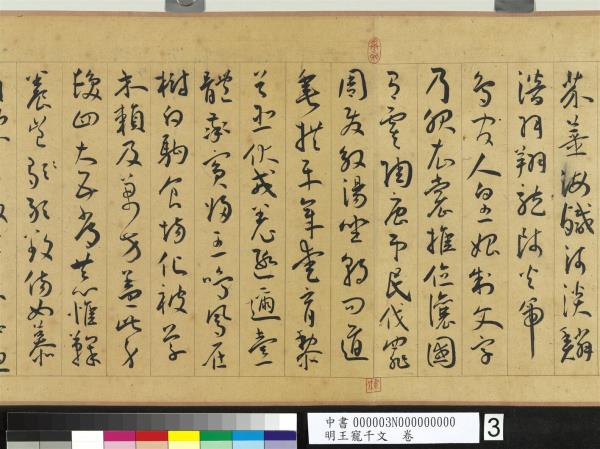 芥薑海鹹河淡鱗
潛羽翔龍師火帝
鳥官人皇始制文字
乃服衣裳推位讓國
有虞陶唐弔民伐罪
周發殷湯坐朝問道
垂拱平章愛育黎
首臣伏戎羌遐邇壹
體率賓歸王鳴鳳在
樹白駒食場化被草
木賴及萬方蓋此身
髮四大五常恭惟鞠
養豈敢毀傷女慕
中書 000003N000000000
明王寵千文 卷
3